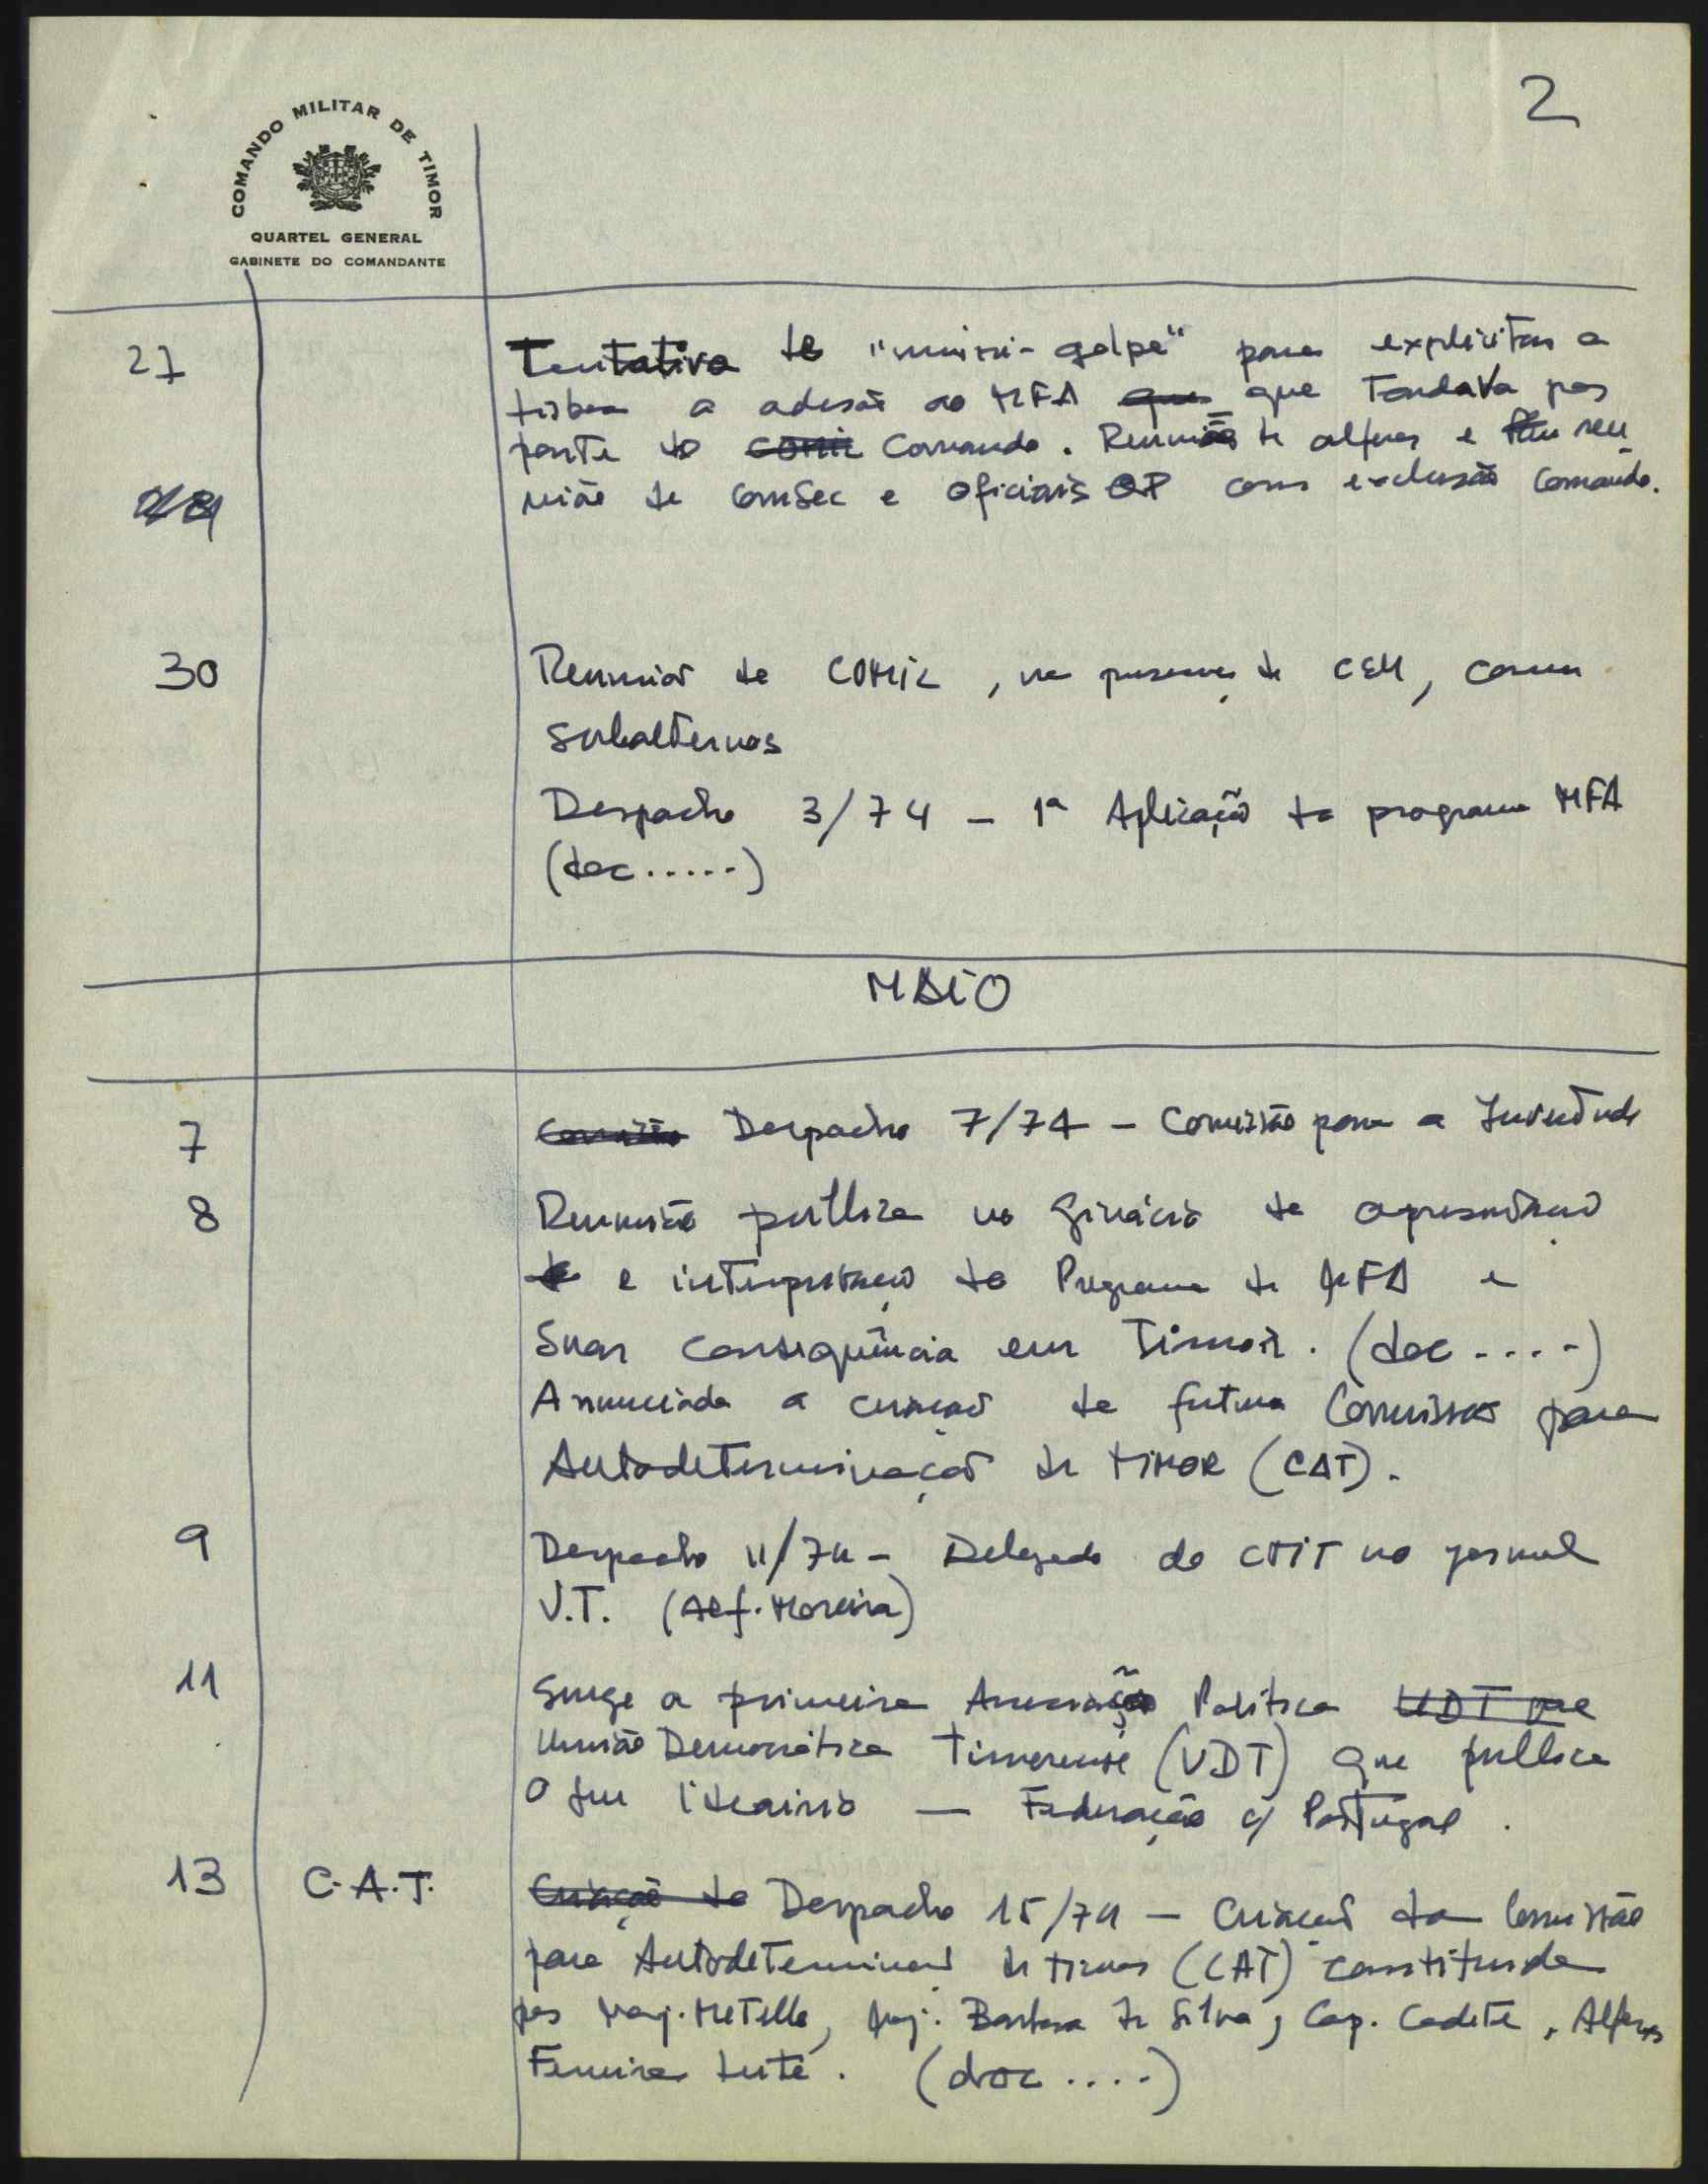 2
COMANDO MILITAR DE TIMOR
QUARTEL GENERAL
GABINETE DO COMANDANTE
27 Tentativa de "mini-golpe" para explicitar a
Lisboa a adesão ao MFA que que Tardava por
parte do COMIL Comando. Reunião de alferes e reu
nião de ComSec e oficiais QP com exclusão Comando.
30 Reunião de COMIL, na presença de CEM, com
subalternos
Despacho 3/74 - 1ª Aplicação do programa MFA
(doc.....)
MAIO
7 Comissão Despacho 7/74 - Comissão para a Juventude
8 Reunião pública no Ginásio de apresentação
e interpretação do Programa do MFA e
suas consequência em Timor. (doc....)
Anunciada a criação de futura Comissão para
Autodeterminação de TIMOR (CAT).
9 Despacho 11/74 - Delegado do no jornal
V.T. (Alf. Moreira)
11 Surge a primeira Associação Política UDT que
União Democrática Timorense (UDT) que publica
o seu ideário — Federação c/ Portugal.
13 C.A.T. Criação da Despacho 15/74 — Criação da Comissão
para Autodeterminação de Timor (CAT) constituida
por Maj. Metello, Maj. Barbosa da Silva, Cap. Cadete, Alferes
Ferreira Leite. (doc....)